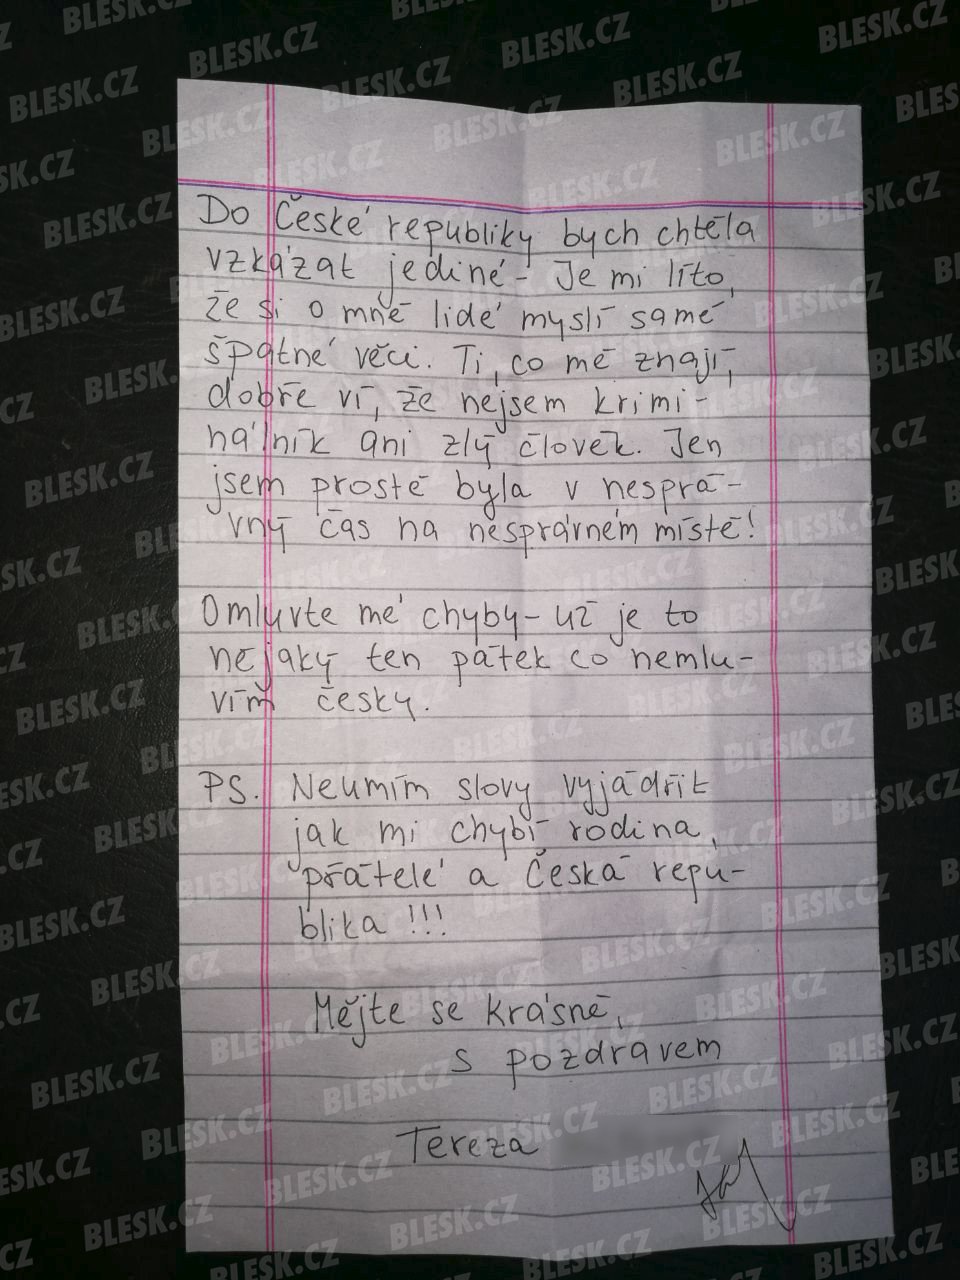 Do České republiky bych chtěla
vzkázat jediné - Je mi líto,
že si o mně lidé myslí samé
špatné věci. Ti, co mě znají,
dobře ví, že nejsem krimi-
nálník ani zlý človek. Jen
jsem prostě byla v nesprá-
vný čas na nesprávném místě!
Omluvte mé chyby - už je to
nějaký ten pátek co nemlu-
vím česky.
PS. Neumím slovy vyjádřit
jak mi chybí rodina,
přátelé a Česká repu-
blika!!!
Mějte se krásně,
s pozdravem
Tereza
BLESK.CZ